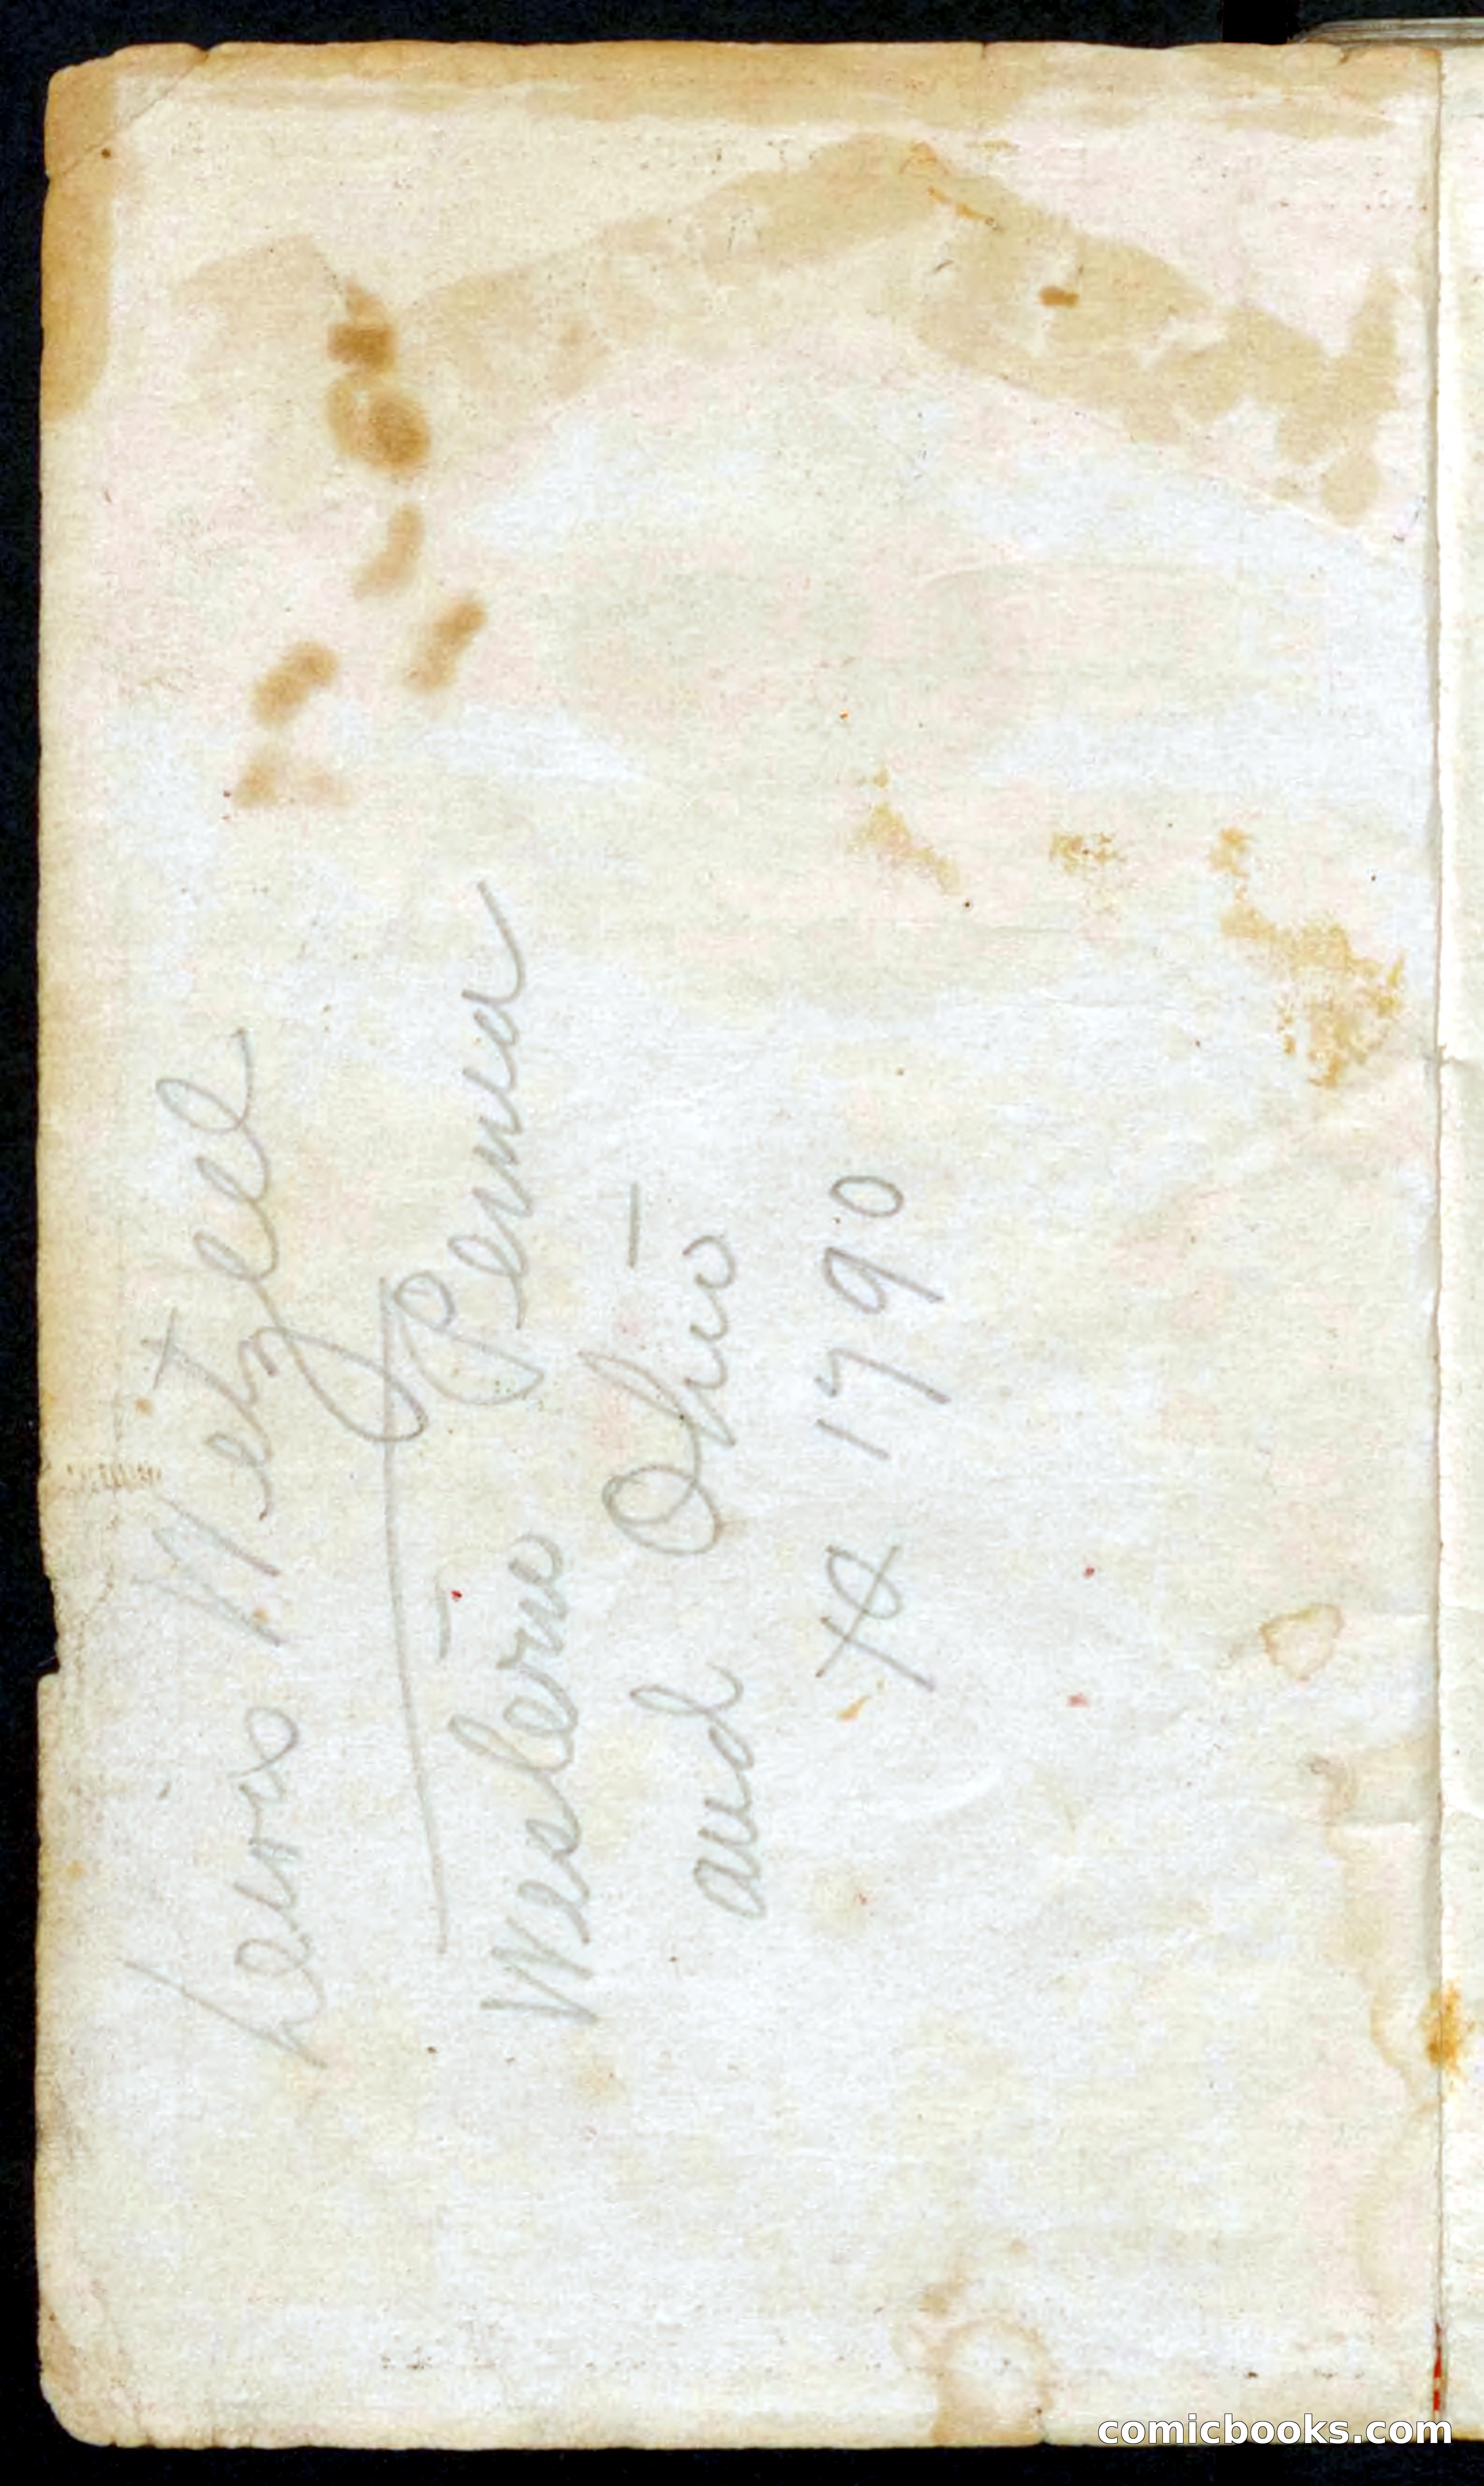 Lewis Wetzell
Western Penna
and Ohio
1790
comicbooks.com